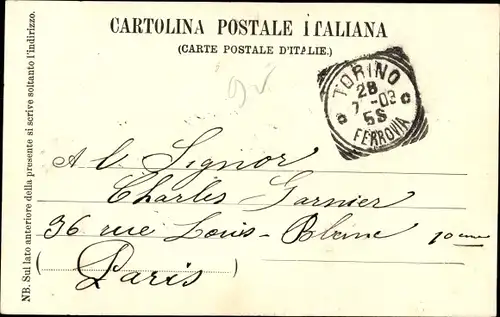 CARTOLINA POSTALE ITALIANA
(CARTE POSTALE D'ITALIE.)
TORINO
28
7 - 03
5S
FERROVIA
NB. Sul lato anteriore della presente si scrive soltanto l'indirizzo.
A l Signor
Charles Garnier
36 rue Louis-Blanc 10eme
Paris